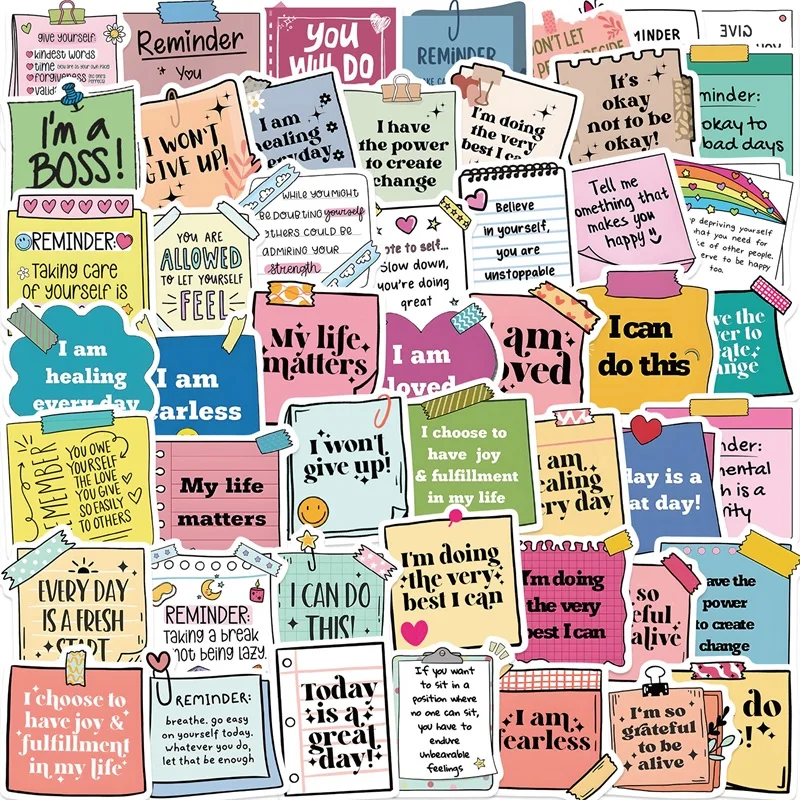 give yourself:
kindest words
time (you are at your own pace)
forgiveness
Reminder
You
You
WILL DO
REMINDER
ON'T LET
DECIDE
MINDER
GIVE
I'm a
BOSS!
I WON'T
GIVE UP!
I am
healing
everyday
I have
the power
to create
change
I'm doing
the very
best I can
It's
okay
not to be
okay!
minder:
okay to
bad days
REMINDER:
Taking care
of yourself is
YOU ARE
ALLOWED
TO LET YOURSELF
FEEL
WHILE YOU MIGHT
BE DOUBTING yourself
OTHERS COULD BE
ADMIRING YOUR
strength
ote to self...
Slow down,
you're doing
great
Believe
in yourself,
you are
unstoppable
Tell me
omething that
makes you
happy
p depriving yourself
hat you need for
ke of other people.
erve to be happy
too.
I am
healing
every day
I am
arless
My life
matters
I am
loved
am
oved
I can
do this
ve the
er to
ate
nge
REMEMBER
YOU OWE
YOURSELF
THE LOVE
YOU GIVE
SO EASILY
TO OTHERS
My life
matters
I won't
give up!
I choose to
have joy
& fulfillment
in my life
I am
ealing
ry day
day is a
at day!
nder:
mental
h is a
rity
EVERY DAY
IS A FRESH
START
REMINDER:
Taking a break
not being lazy.
I CAN DO
THIS!
I'm doing
the very
best I can
I'm doing
the very
best I can
so
eful
alive
ave the
power
to create
change
I choose to
have joy &
fulfillment
in my life
REMINDER:
breathe. go easy
on yourself today.
whatever you do,
let that be enough
Today
is a
great
day!
If you want
to sit in a
position where
no one can sit,
you have to
endure
unbearable
feelings
I am
fearless
I'm so
grateful
to be
alive
do
!